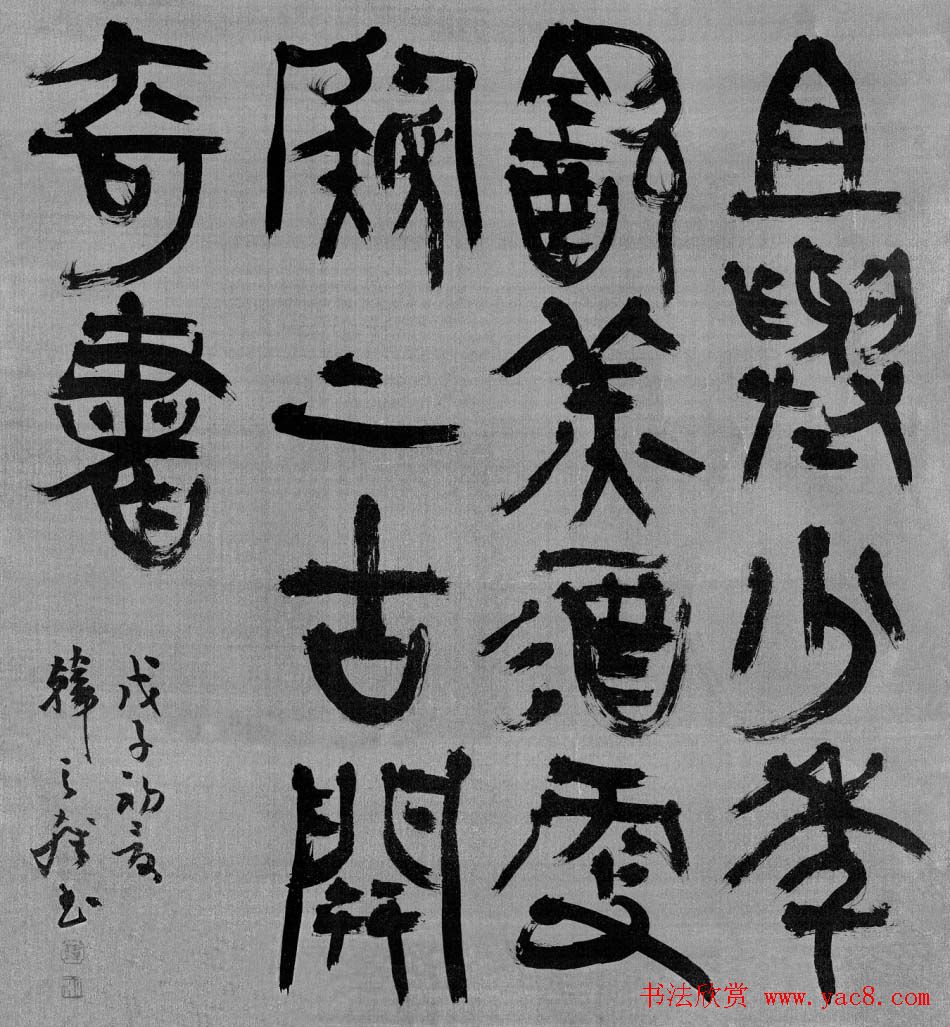 且與少年
飲美酒更
窺上古開
奇書
戊子初夏
韓天雍書
书法欣赏 www.yac8.com